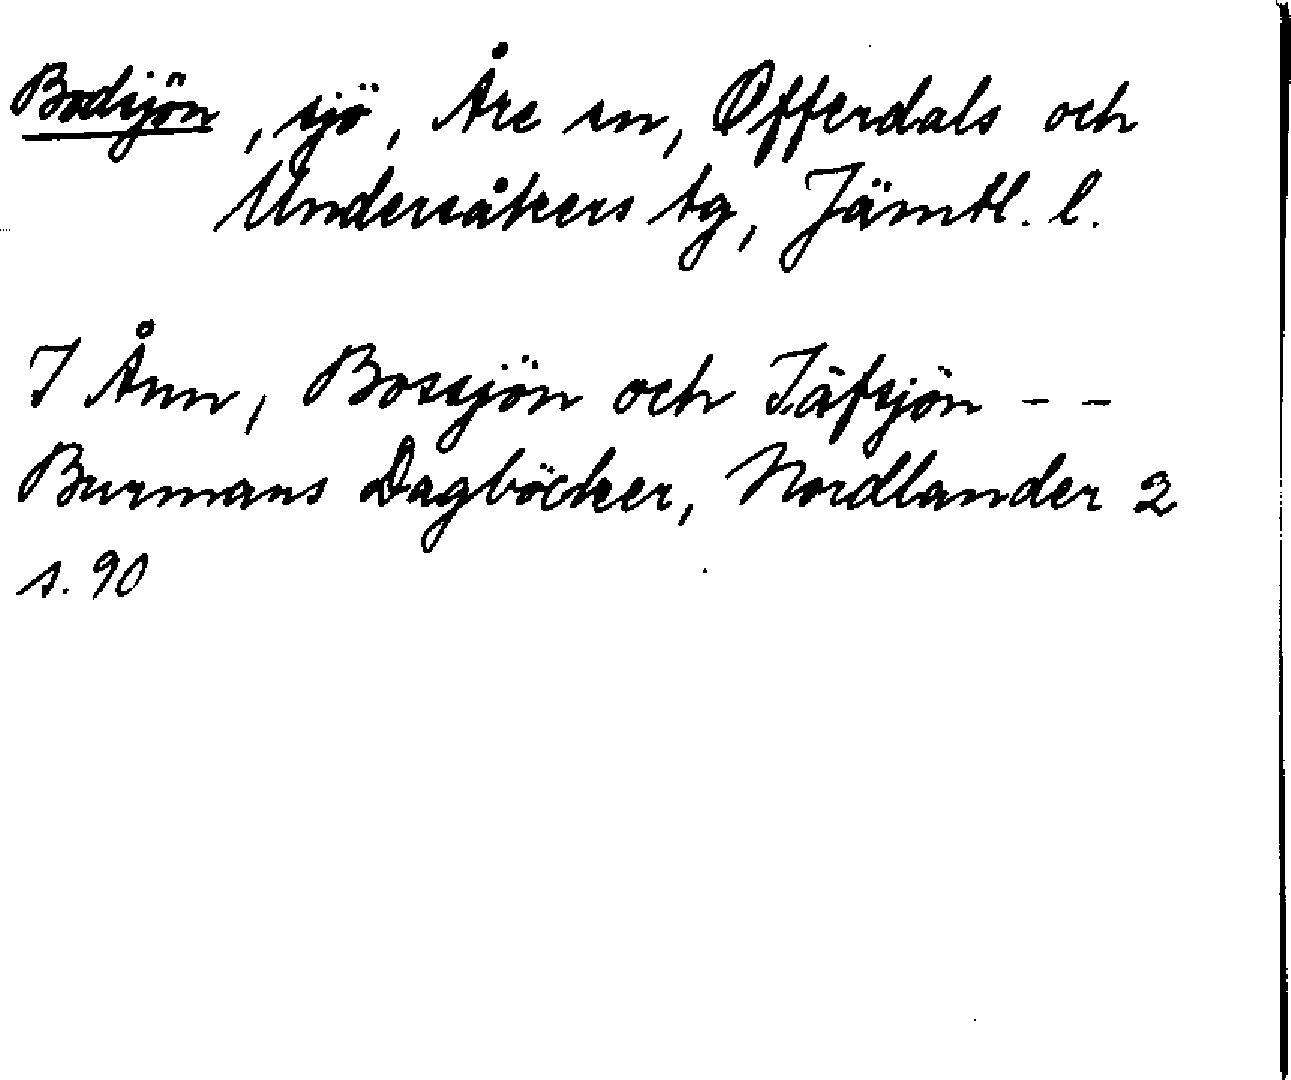 Bodsjön, sjö, Åre sn, Offerdals och
Undersåkers tg, Jämtl. l.
I Ånn, Bossjön och Täfsjön - -
Burmans Dagböcker, Nordlander 2
s. 90